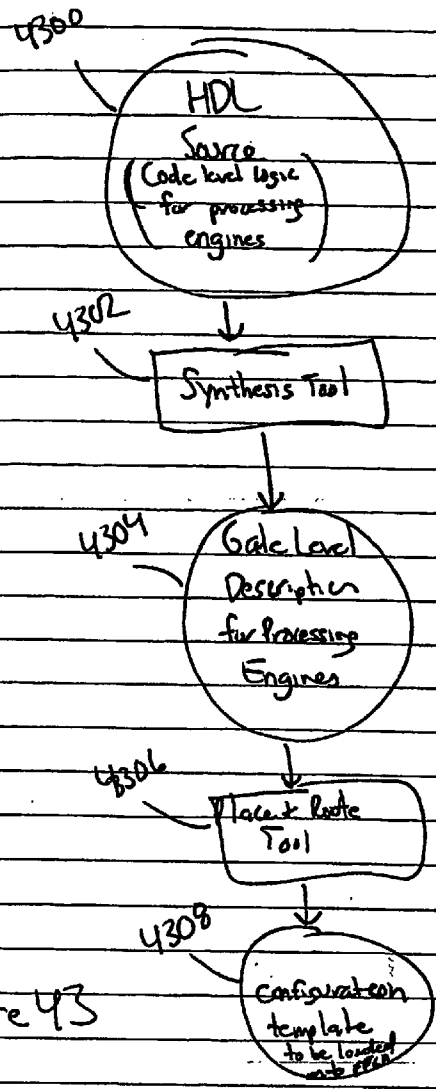 4300
HDL
Source
(Code level logic
for processing
engines)
4302
Synthesis Tool
4304
Gate Level
Description
for Processing
Engines
4306
Place & Route
Tool
4308
configuration
template
to be loaded
onto FPGA
e 43